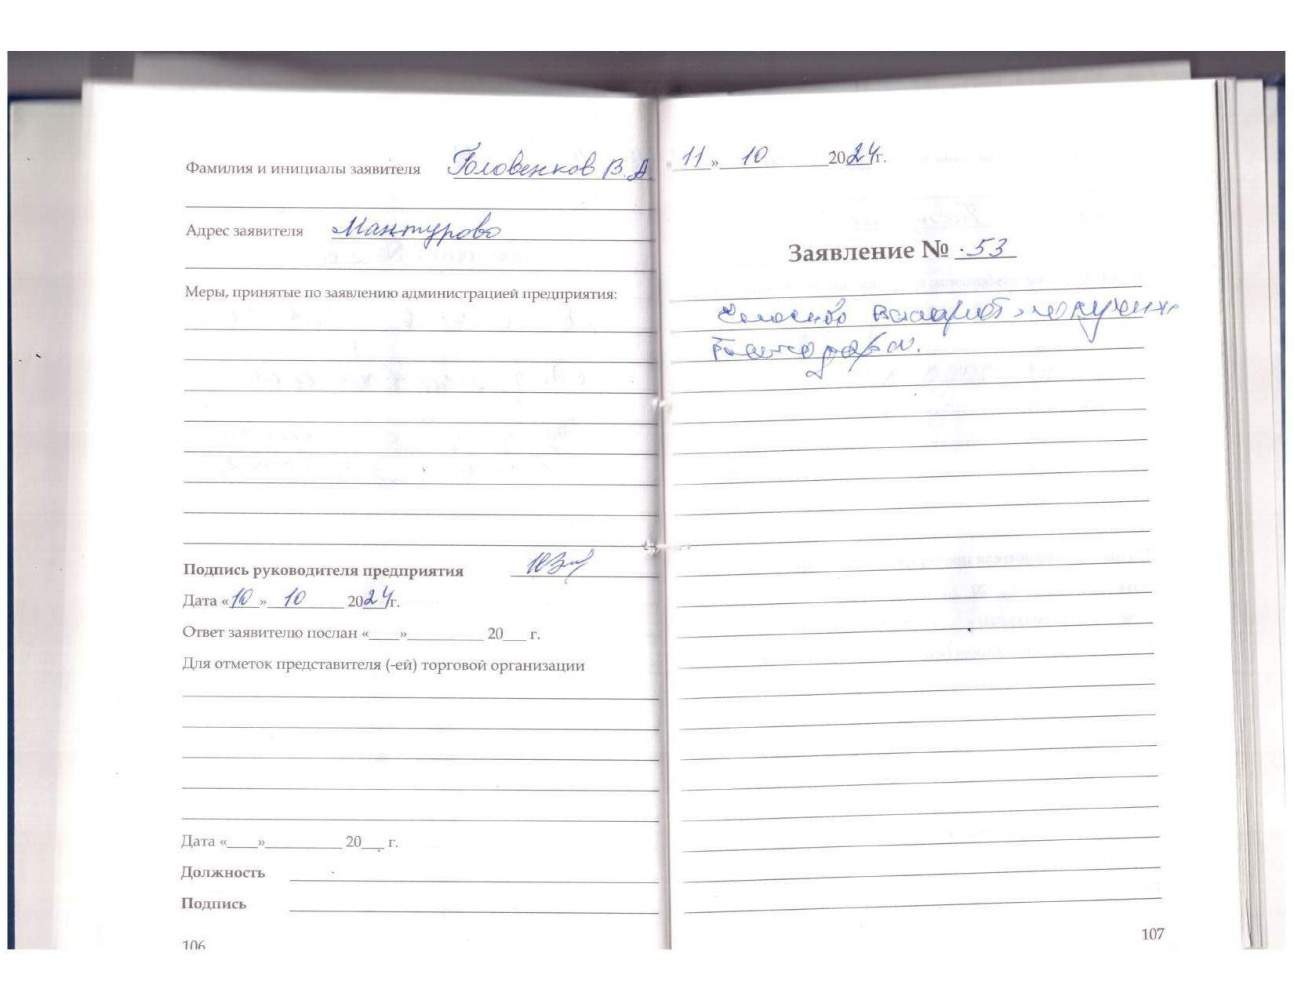 Фамилия и инициалы заявителя Головенков В. А.
Адрес заявителя Мантурово
Меры, принятые по заявлению администрацией предприятия:
Подпись руководителя предприятия
Дата «10» 10 2024г.
Ответ заявителю послан «___»__________ 20___ г.
Для отметок представителя (-ей) торговой организации
Дата «____»__________ 20___ г.
Должность
Подпись
106
«11» 10 2024г.
Заявление № 53
Спасибо
107